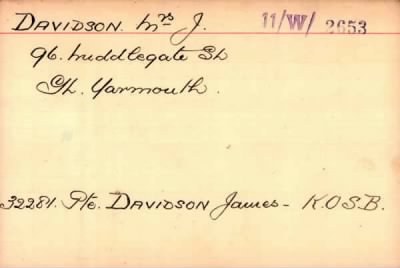 DAVIDSON. Mrs J. 11/W/ 2653
96. Middlegate St
Gt. Yarmouth.
32281. Pte. DAVIDSON James - K.O.S.B.